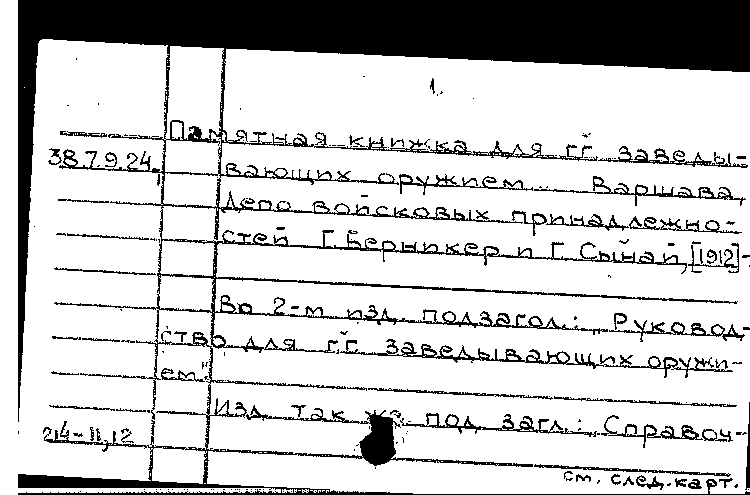 1.
Памятная книжка для г.г. заведы-
38.7.9.24. вающих оружием... Варшава,
Депо войсковых принадлежно-
стей Г. Берникер и Г. Сынай, [1912]-
Во 2-м изд. подзагол.: „Руковод-
ство для г.г. заведывающих оружи-
ем".
Изд. так же под загл.: „Справоч-
24-11,12
см. след. карт.